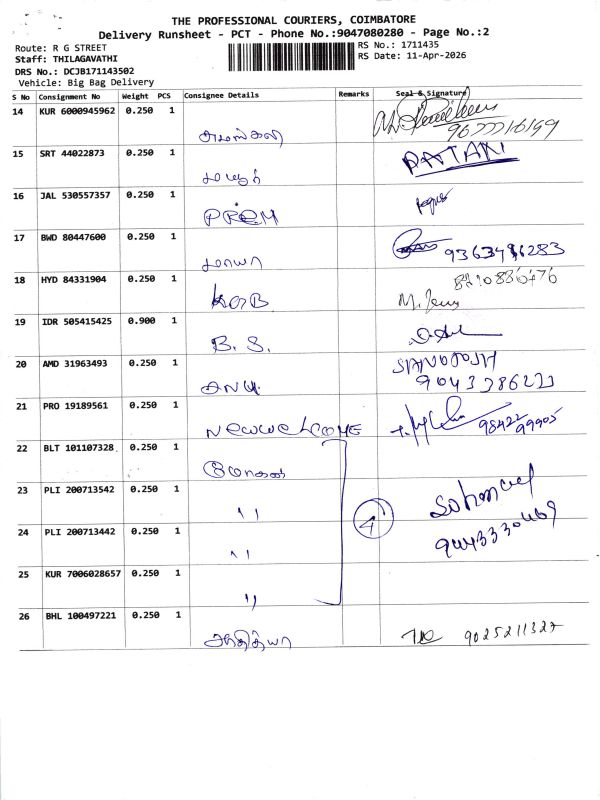 THE PROFESSIONAL COURIERS, COIMBATORE
Delivery Runsheet - PCT - Phone No.:9047080280 - Page No.:2
Route: R G STREET
RS No.: 1711435
Staff: THILAGAVATHI
RS Date: 11-Apr-2026
DRS No.: DCJB171143502
Vehicle: Big Bag Delivery
S No Consignment No Weight PCS Consignee Details Remarks Seal & Signature
14 KUR 6000945962 0.250 1
15 SRT 44022873 0.250 1
PATANI
16 JAL 530557357 0.250 1
PREM
17 BWD 80447600 0.250 1
மாயா
18 HYD 84331904 0.250 1
19 IDR 505415425 0.900 1
B. S.
20 AMD 31963493 0.250 1
21 PRO 19189561 0.250 1
Newwelcome 98422 99905
22 BLT 101107328 0.250 1
மோகன்
23 PLI 200713542 0.250 1
" 4
24 PLI 200713442 0.250 1
"
25 KUR 7006028657 0.250 1
"
26 BHL 100497221 0.250 1
ஆதித்யா 9025211327